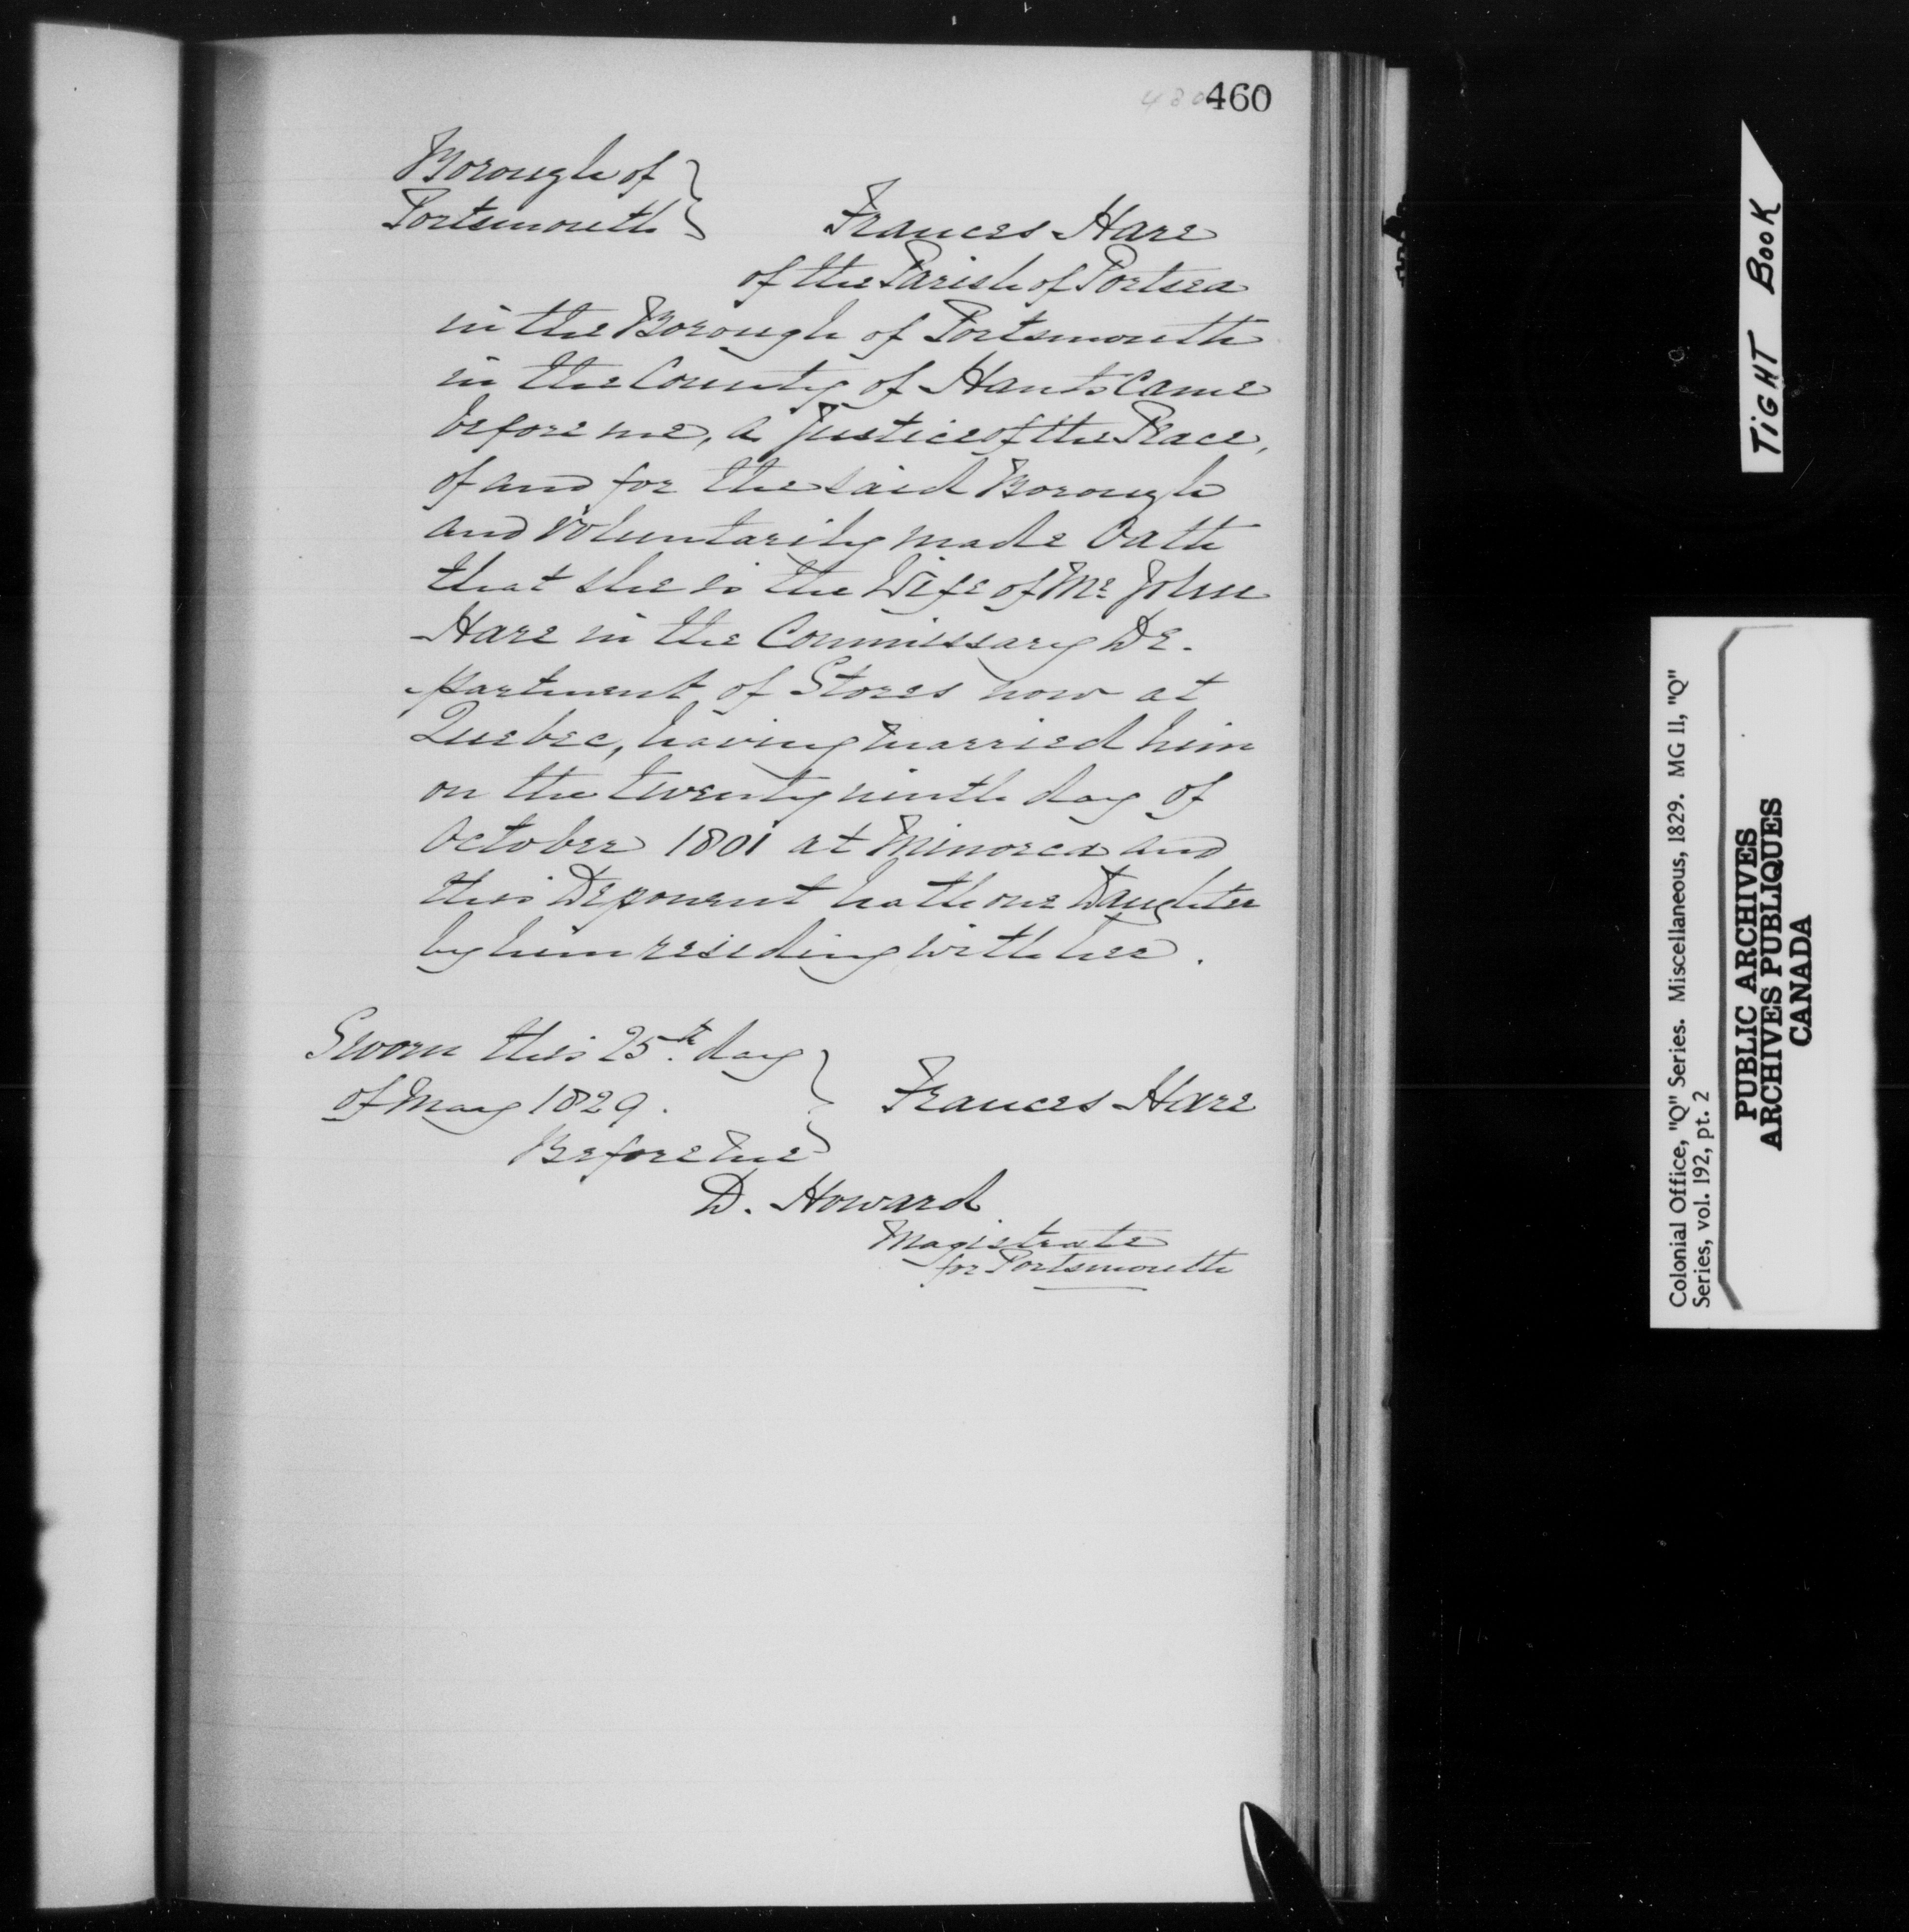 460
Borough of
Portsmouth
Frances Hare
of the Parish of Portsea
in the Borough of Portsmouth
in the County of Hants Came
before me, a Justice of the Peace,
of and for the said Borough
and voluntarily made Oath
that she is the Wife of Mr John
Hare in the Commissary De-
-partment of Stores now at
Quebec, having married him
on the twenty ninth day of
October 1801 at Minorca and
this Deponent hath one Daughter
by him residing with her.
Sworn this 25th day
of May 1829.
Before me
Frances Hare
D. Howard
Magistrate
for Portsmouth
TIGHT BOOK
Colonial Office, "Q" Series. Miscellaneous, 1829. MG 11, "Q"
Series, vol. 192, pt. 2
PUBLIC ARCHIVES
ARCHIVES PUBLIQUES
CANADA